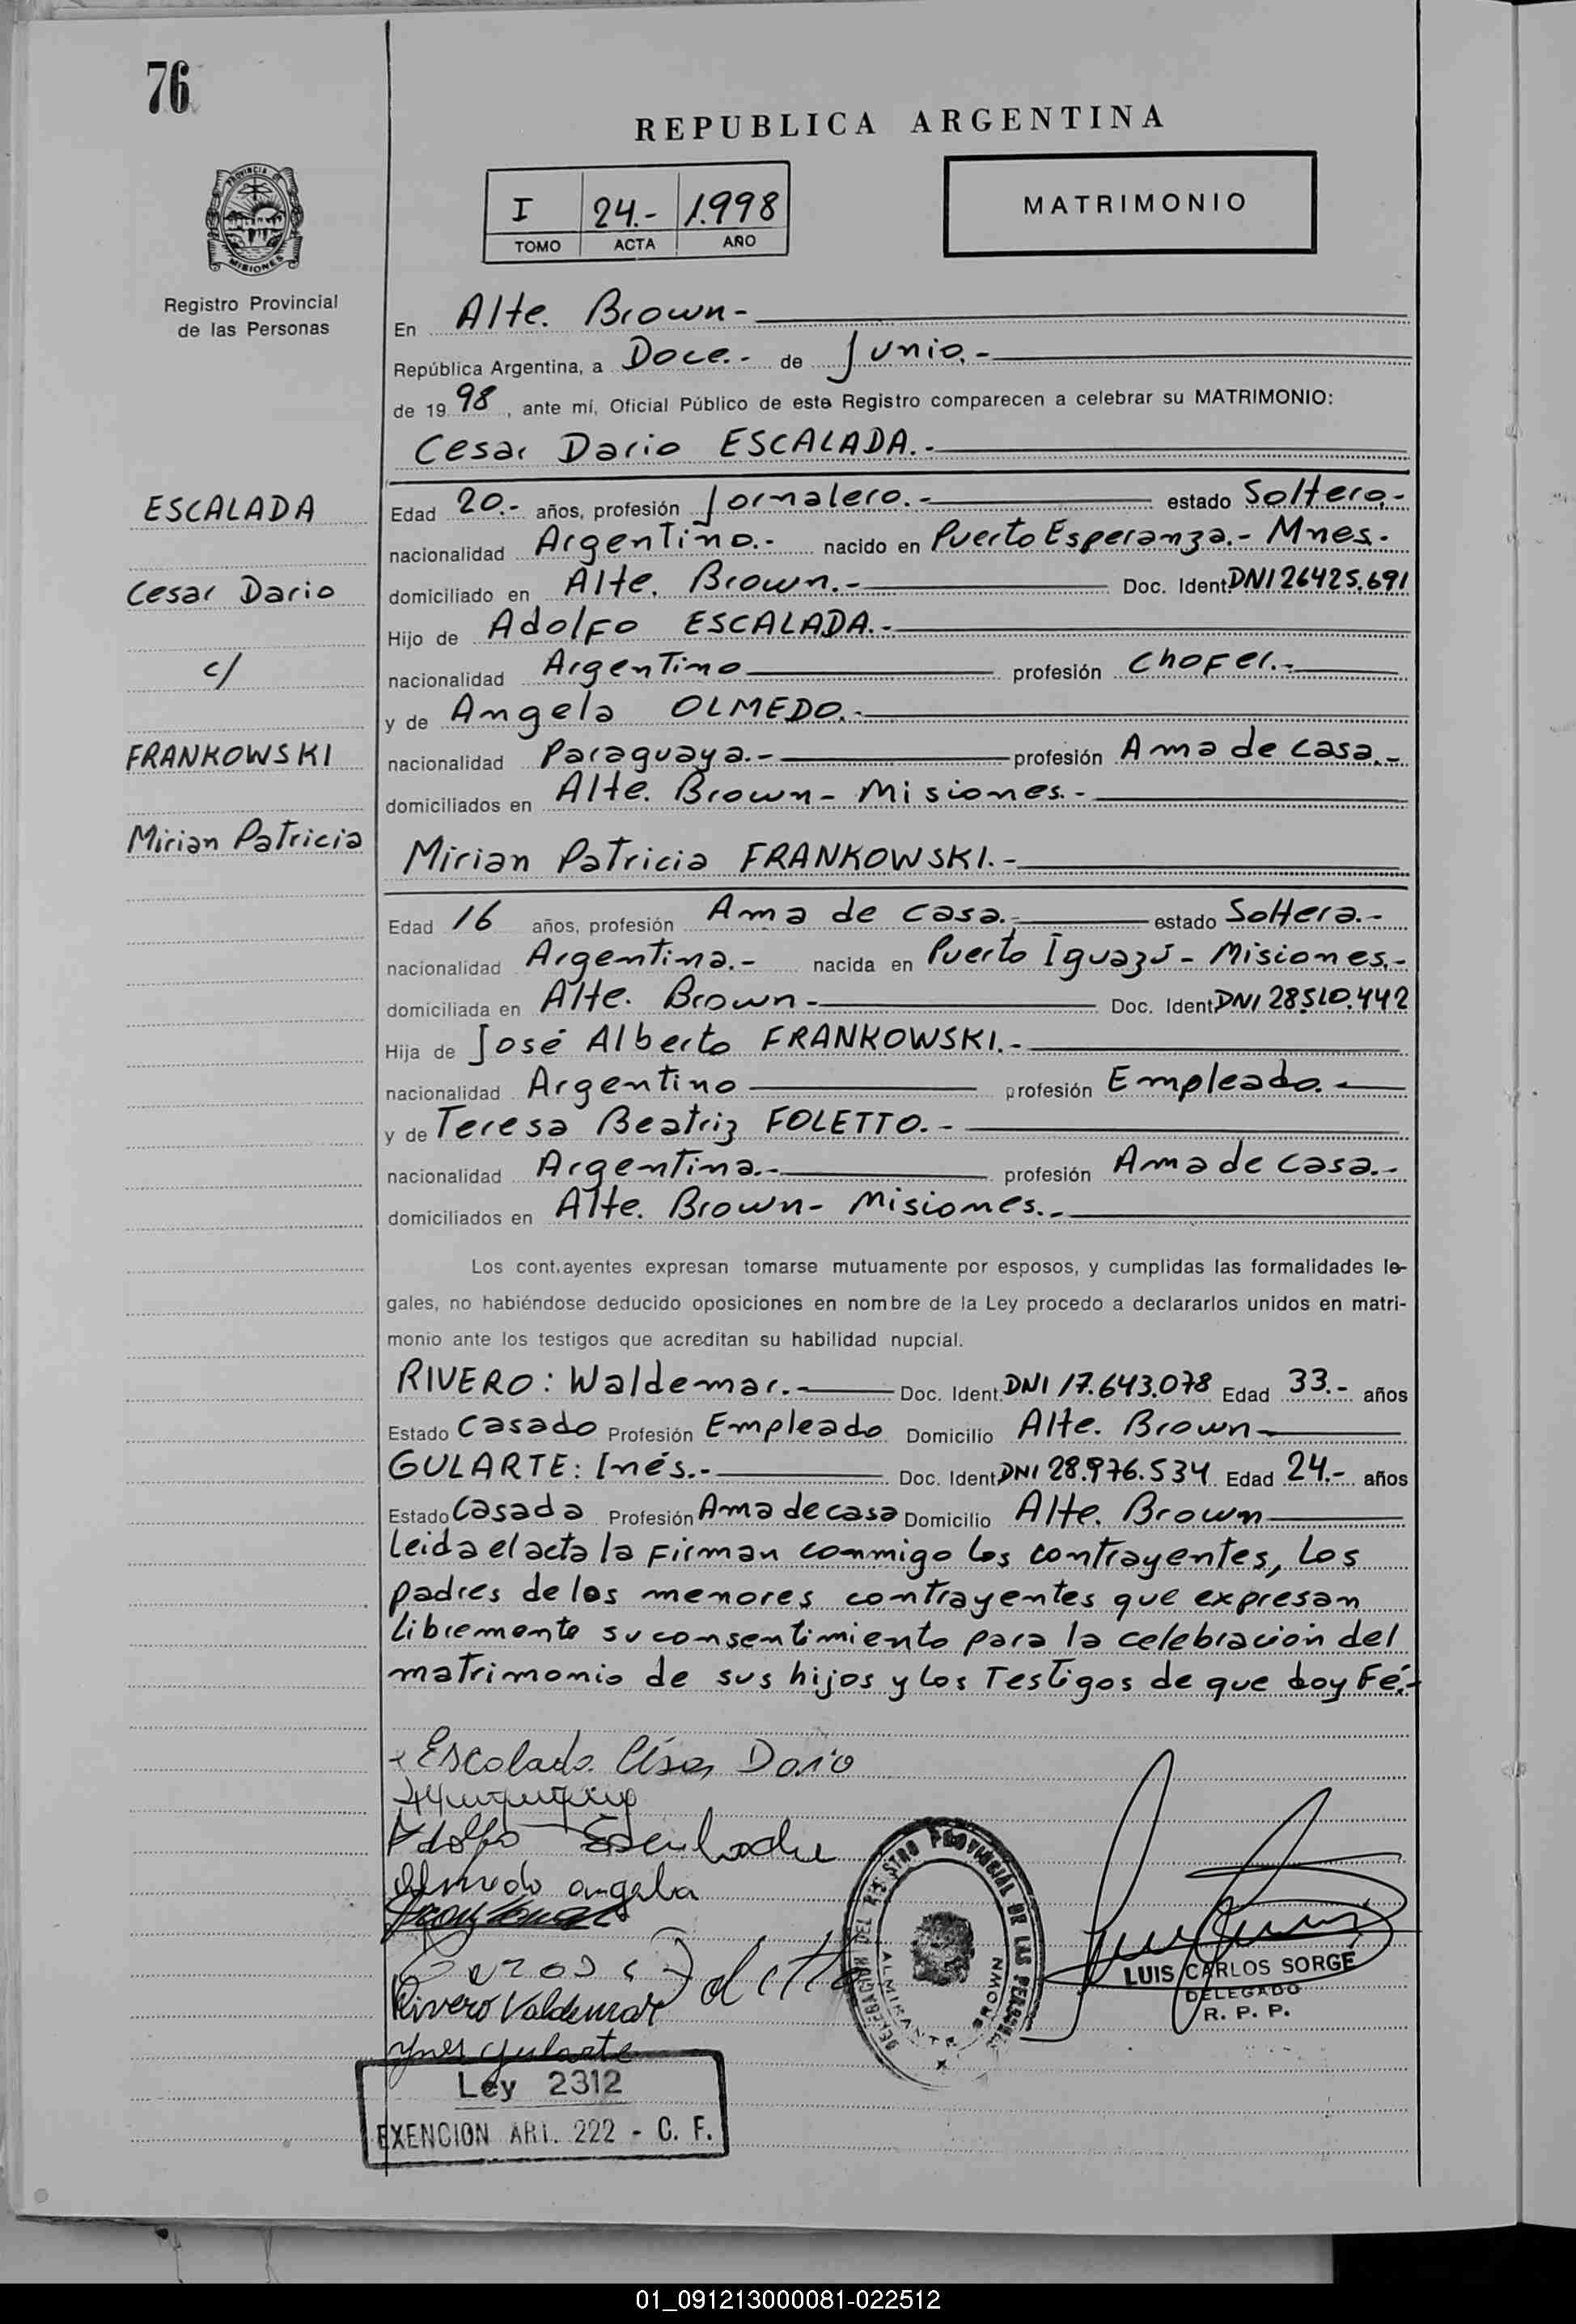 76
REPUBLICA ARGENTINA
PROVINCIA DE
MISIONES
Registro Provincial
de las Personas
I 24.- 1.998
TOMO ACTA AÑO
MATRIMONIO
En Alte. Brown-
República Argentina, a Doce.- de Junio.-
de 19 98, ante mí, Oficial Público de este Registro comparecen a celebrar su MATRIMONIO:
Cesar Dario ESCALADA.-
ESCALADA
Cesar Dario
c/
FRANKOWSKI
Mirian Patricia
Edad 20.- años, profesión Jornalero.- estado Soltero.-
nacionalidad Argentino.- nacido en Puerto Esperanza.- Mnes.-
domiciliado en Alte. Brown.- Doc. Ident. DNI 26425.691
Hijo de Adolfo ESCALADA.-
nacionalidad Argentino profesión Chofer.-
y de Angela OLMEDO.-
nacionalidad Paraguaya.- profesión Ama de casa.-
domiciliados en Alte. Brown- Misiones.-
Mirian Patricia FRANKOWSKI.-
Edad 16 años, profesión Ama de casa.- estado Soltera.-
nacionalidad Argentina.- nacida en Puerto Iguazú- Misiones.-
domiciliada en Alte. Brown- Doc. Ident. DNI 28.510.442
Hija de José Alberto FRANKOWSKI.-
nacionalidad Argentino profesión Empleado.-
y de Teresa Beatriz FOLETTO.-
nacionalidad Argentina.- profesión Ama de casa.-
domiciliados en Alte. Brown- Misiones.-
Los cont.ayentes expresan tomarse mutuamente por esposos, y cumplidas las formalidades le-
gales, no habiéndose deducido oposiciones en nombre de la Ley procedo a declararlos unidos en matri-
monio ante los testigos que acreditan su habilidad nupcial.
RIVERO: Waldemar.- Doc. Ident. DNI 17.643.078 Edad 33.- años
Estado Casado Profesión Empleado Domicilio Alte. Brown-
GULARTE: Inés.- Doc. Ident. DNI 28.976.534 Edad 24.- años
Estado Casada Profesión Ama de casa Domicilio Alte. Brown
Leida el acta la Firman conmigo los contrayentes, Los
padres de los menores contrayentes que expresan
libremente su consentimiento para la celebración del
matrimonio de sus hijos y los Testigos de que doy Fé.-
Escalada Césa, Dario
Adolfo Escalada
Olmedo angela
Foletto
Rivero Valdemar
Ynes Gularte
DELEGACION DEL REGISTRO PROVINCIAL DE LAS PERSONAS
ALMIRANTE BROWN
LUIS CARLOS SORGE
DELEGADO
R. P. P.
Ley 2312
EXENCION ART. 222 - C. F.
01_091213000081-022512